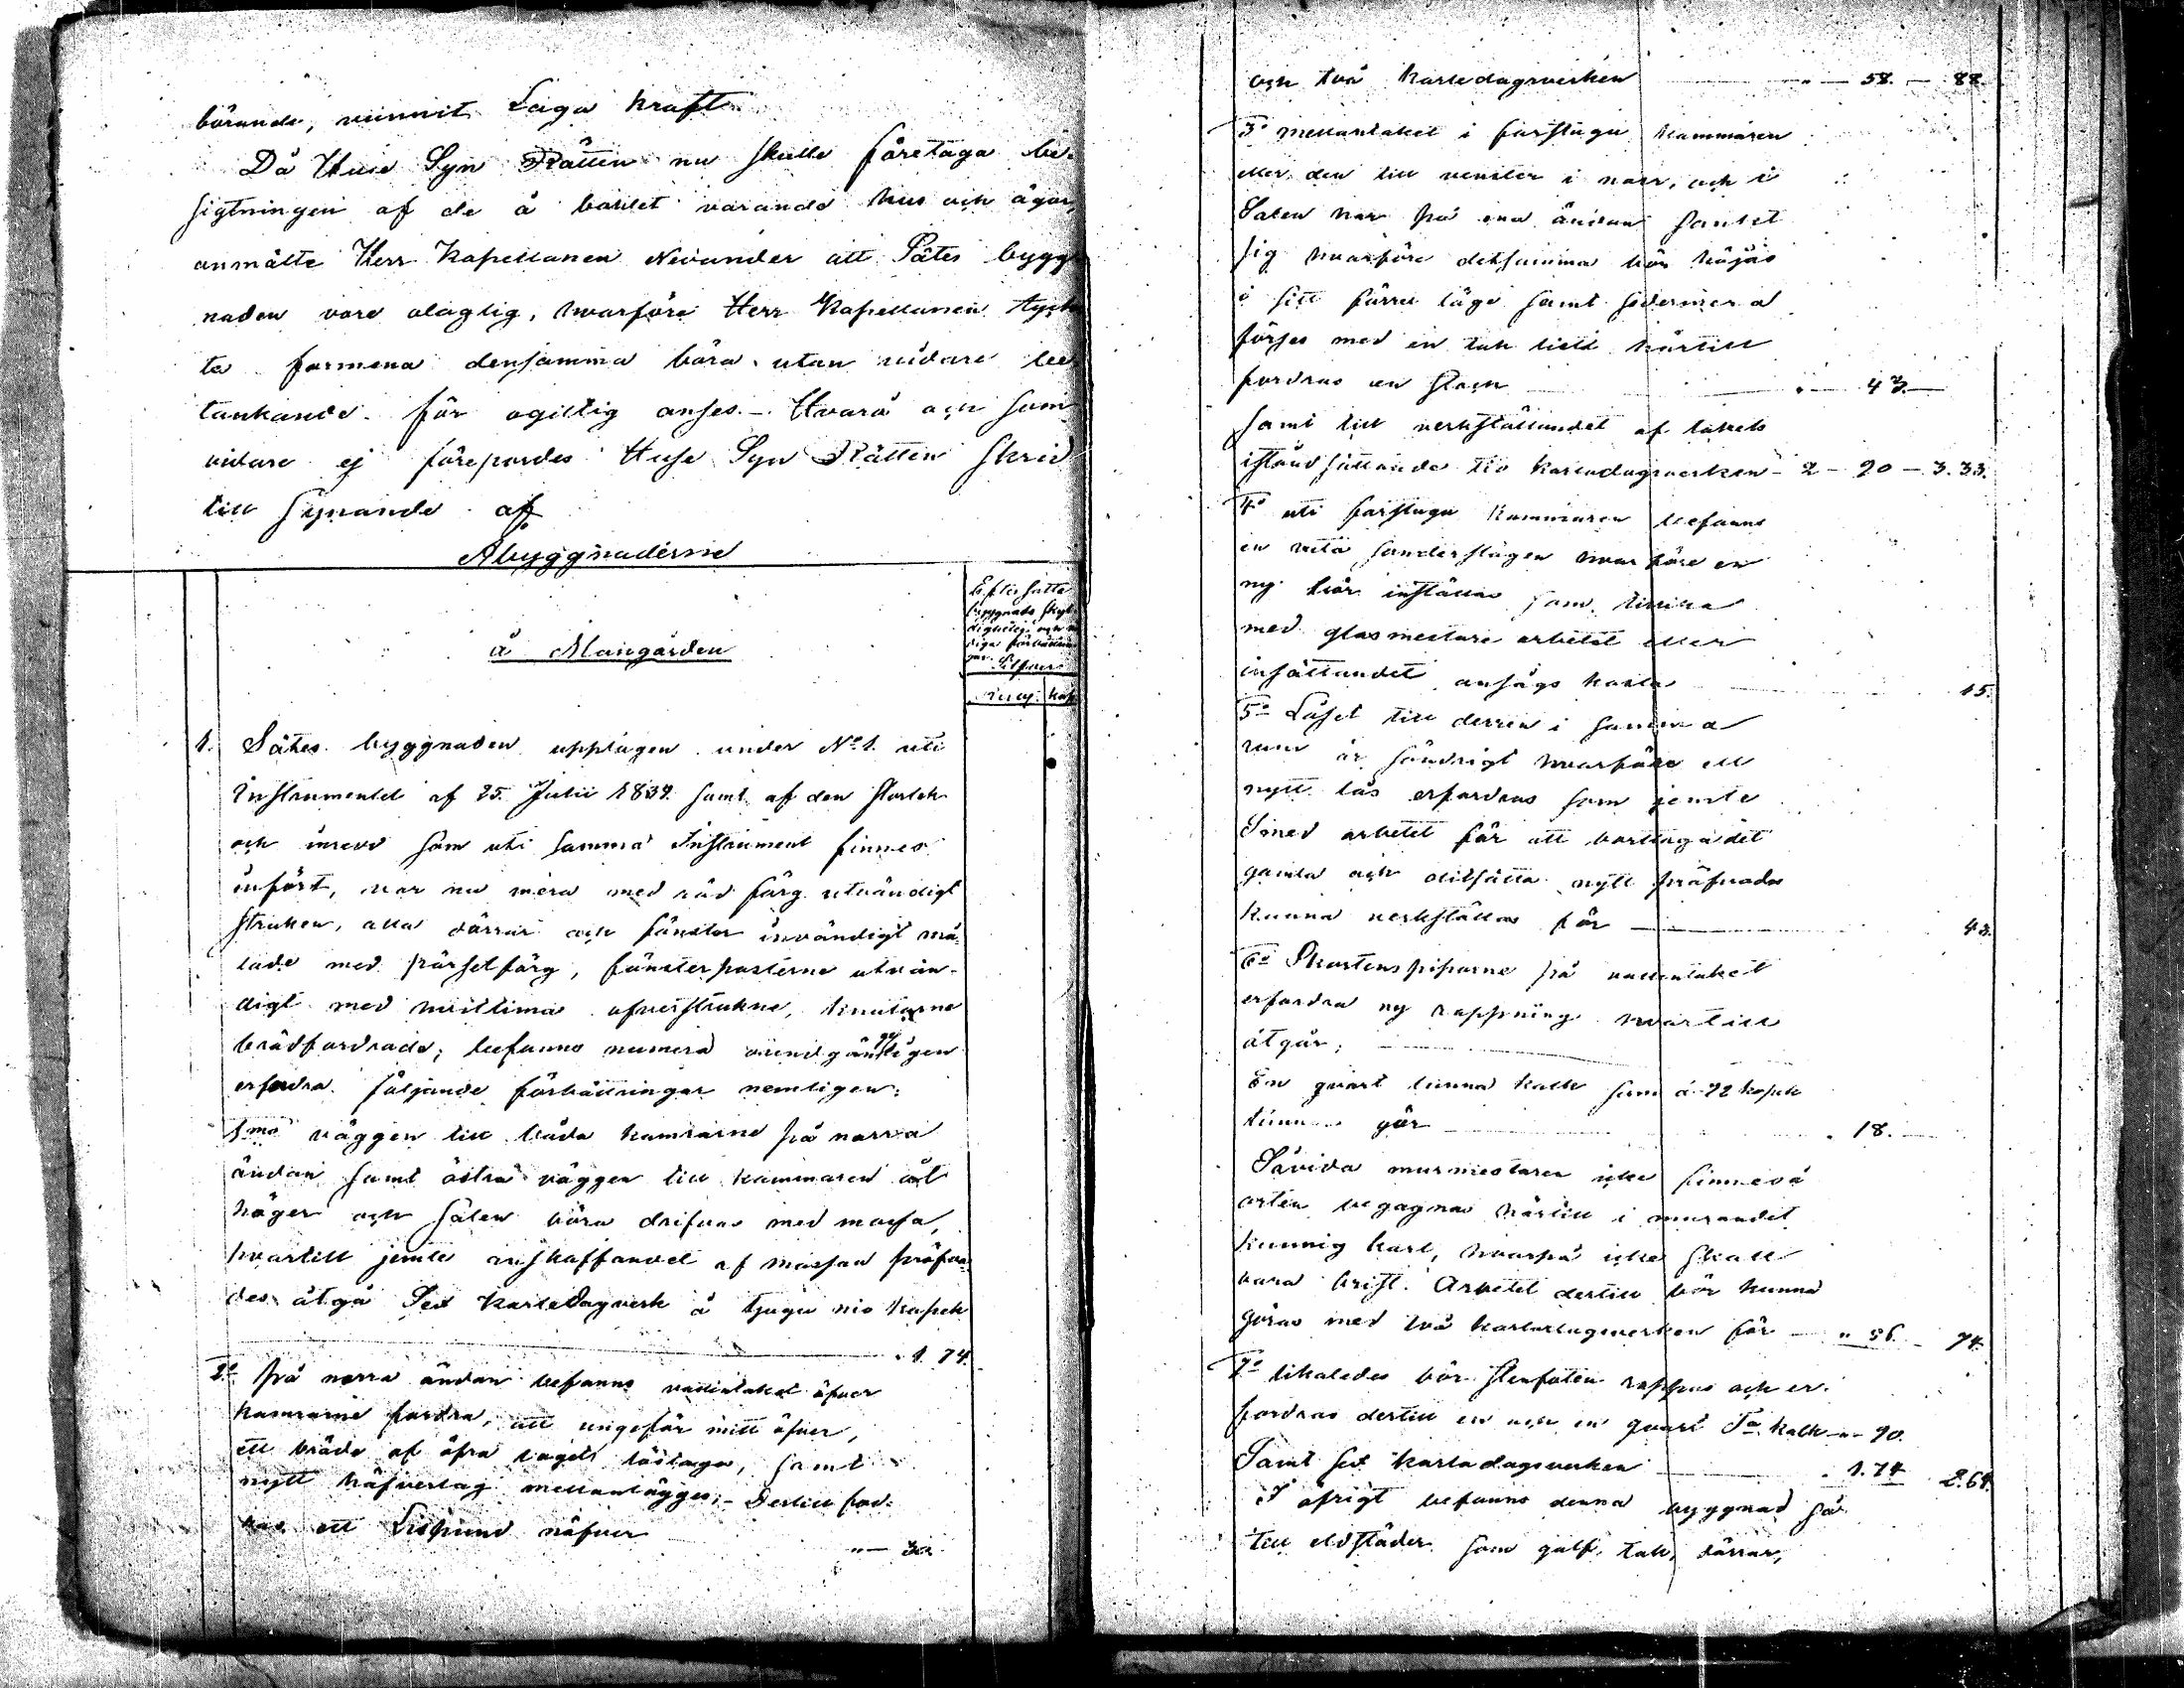 börande, vunnit Laga kraft.
Då Huse Syn Rätten nu skulle företaga be-
sigtningen af de å bolet varande hus och ägor,
anmälte Herr Kapellanen Nevander att Sätes bygg
naden vore olaglig, hvarföre Herr Kapellanen tyck
te formena densamma böra utan vidare be-
tänkande för ogiltig anses. – Hvarå och som
vidare ej förepordes Huse Syn Rätten skred
till synande af
Åbyggnaderne
å Mangården
Eftersatta
byggnads skyl-
dighetej och nö
diga förbättrin
gar. Silfver
Rub. kop.
1. Sätes byggnaden upptagen under No 1. uti
Instrumentet af 25. Julii 1837 samt af den storlek
och inredd som uti samma Instrument finnes
infört, var nu mera med röd färg utvändigt
struken, alla dörrar och fönster invändigt må-
lade med pärlfärg, fönsterposterne utvän-
digt med hvitlima öfverstrukne, knutarne
brädfordrade, befanns numera oundgängeligen
erfordra följande förbättringar nemligen:
1mo väggen till båda kamrarne på norra
ändan samt östra väggen till kammaren åt
höger och salen böra drifvas med mossa,
hvartill jemte anskaffandet af mossan pröfva-
des åtgå Sex Karledagsverk à tjugu nio kopek
1. 74.
2o på norra ändan befanns vattentaket öfver
kamrarne fordra, att ungefär mitt öfver,
ett bräde af öfra laget löstages, samt
nytt näfverlag mellanlägges, – Dertill ford-
ras ett Lispund näfver " — 30.
och två karledagsverken " — 58. — 88.
3o mellantaket i farstugu kammaren
eller den till venster i norr, och i
Salen har på ena ändan sänkt
sig hvarföre detsamma bör höjas
i sitt förra läge samt sedermera
förses med en tak list härtill
fordras en stock " — 43. —
samt till verkställandet af takets
iståndsättande tio karledagsverken – 2 – 90 – 3. 33.
4o uti farstugu kammaren befanns
en ruta sönderslagen hvarföre en
ny bör insättas som tillika
med glasmestare arbetet eller
insättandet ansågs kosta 15.
5o Låset till dörren i samma
rum är söndrigt hvarföre ett
nytt lås erfordras som jemte
Smed arbetet för att borttaga det
gamla och ditsätta nytt pröfvades
kunna verkställas för 43.
6o Skorstenspiporne på vattentaket
erfordra ny rappning hvartill
åtgår;
En quart tunna kalk som à 72 kopek
tunn gör . 18. —
Såvida murmestaren icke finnes å
orten begagnas härtill i murandet
kunnig karl, hvarpå icke skall
vara brist. Arbetet dertill bör kunna
göras med två karledagsverken för — " 56. – 74.
7o likaledes bör stenfoten rappas och er-
fordras dertill en och en quart Ta. kalk – " – 90.
Samt sex karledagsverken . 1. 74 2. 64.
I öfrigt befanns denna byggnad så
till eldstäder som golf, tak, dörrar,